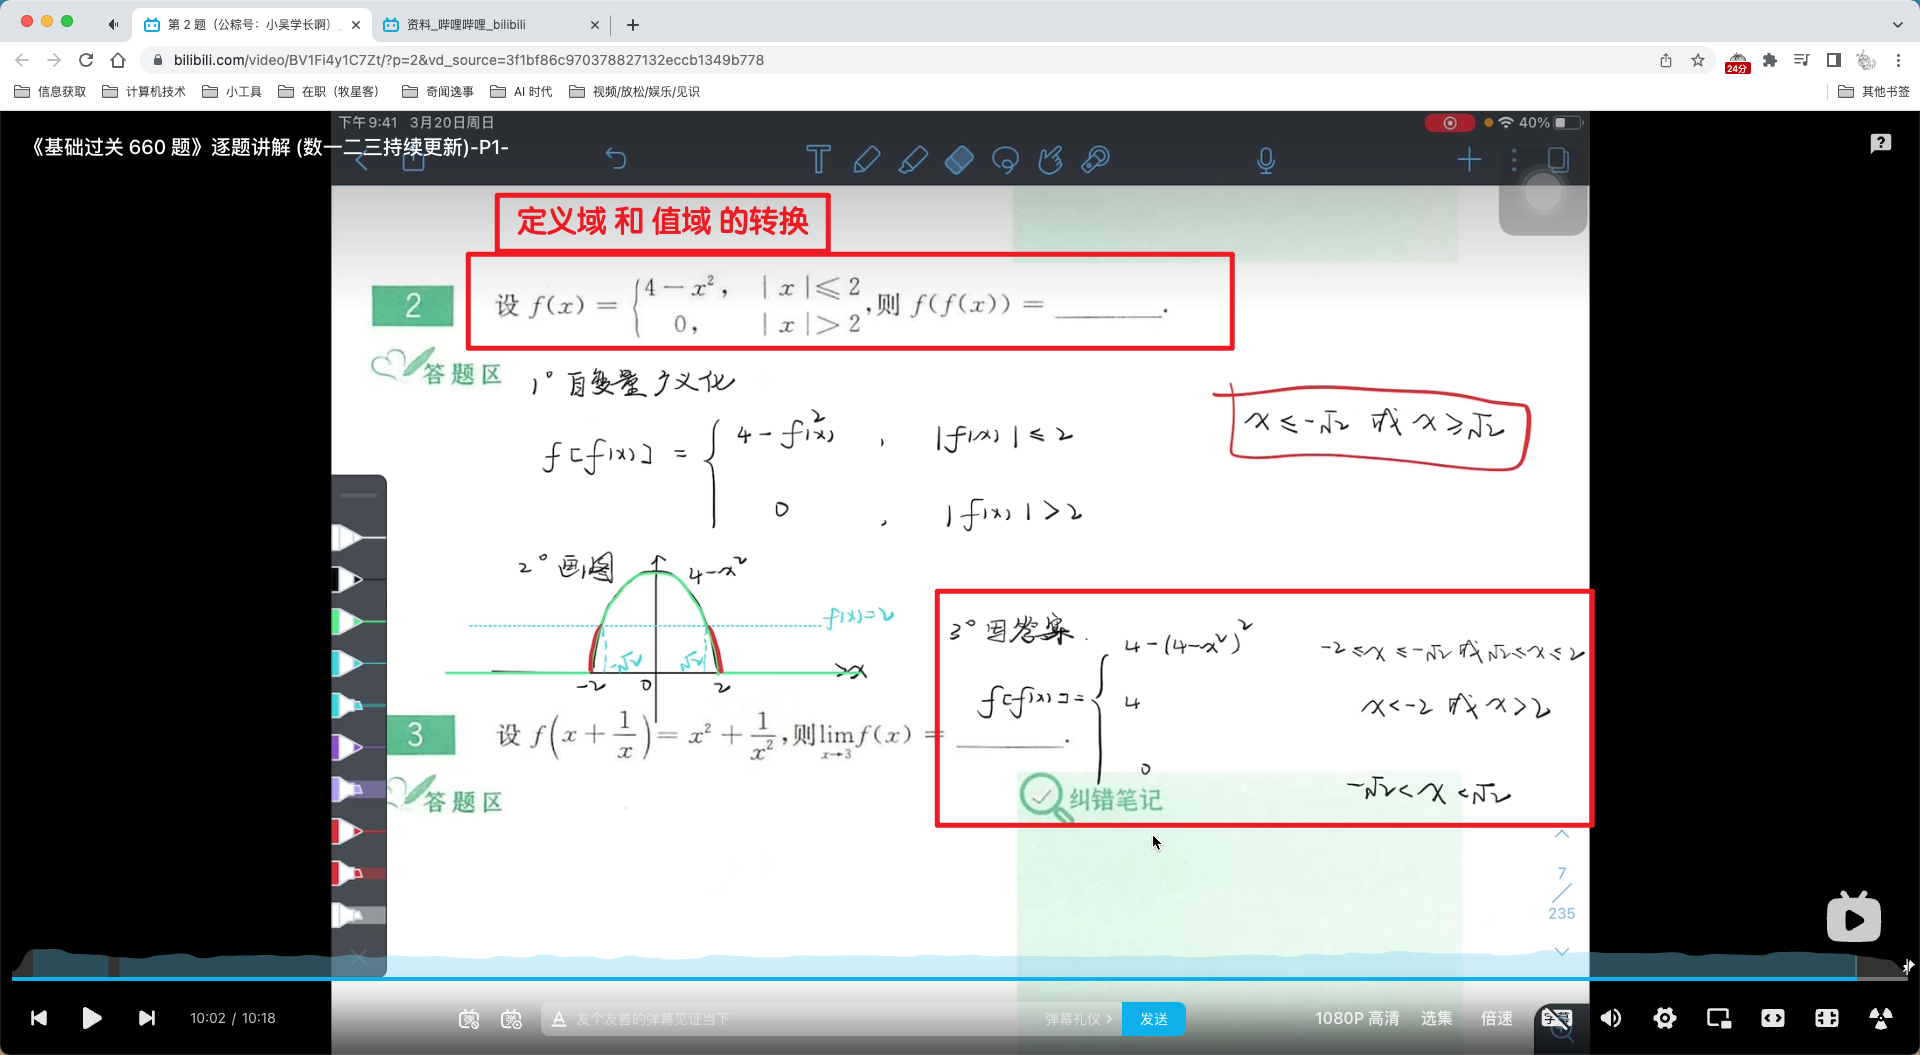 第 2 题（公粽号：小吴学长啊）_
资料_哔哩哔哩_bilibili
bilibili.com/video/BV1Fi4y1C7Zt/?p=2&vd_source=3f1bf86c970378827132eccb1349b778
24分
信息获取 计算机技术 小工具 在职（牧星客） 奇闻逸事 AI 时代 视频/放松/娱乐/见识 其他书签
下午9:41 3月20日周日 40%
《基础过关 660 题》逐题讲解 (数一二三持续更新)-P1-
定义域 和 值域 的转换
2 设 f(x) = { 4 − x², | x | ⩽ 2
0, | x | > 2 ,则 f(f(x)) = ________.
答题区
1° 自变量广义化
x ≤ -√2 或 x ≥ √2
f[f(x)] = { 4 - f²(x) , |f(x)| ≤ 2
0 , |f(x)| > 2
2° 画图
4-x²
f(x)=2
-√2 √2
-2 0 2 x
3° 写答案.
f[f(x)] = { 4-(4-x²)² -2 ≤ x ≤ -√2 或 √2 ≤ x ≤ 2
4 x < -2 或 x > 2
0 -√2 < x < √2
3 设 f(x + 1/x) = x² + 1/x², 则 lim x→3 f(x) = ________.
答题区
纠错笔记
7
235
10:02 / 10:18
发个友善的弹幕见证当下
弹幕礼仪 >
发送
1080P 高清 选集 倍速
字幕